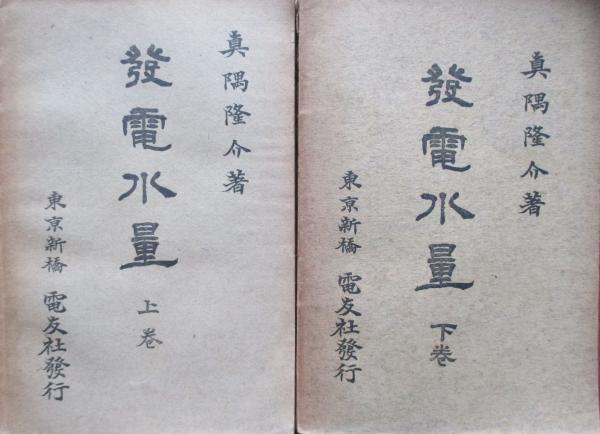 眞隅隆介著
發電水量
上卷
東京新橋 電友社發行
眞隅隆介著
發電水量
下卷
東京新橋 電友社發行